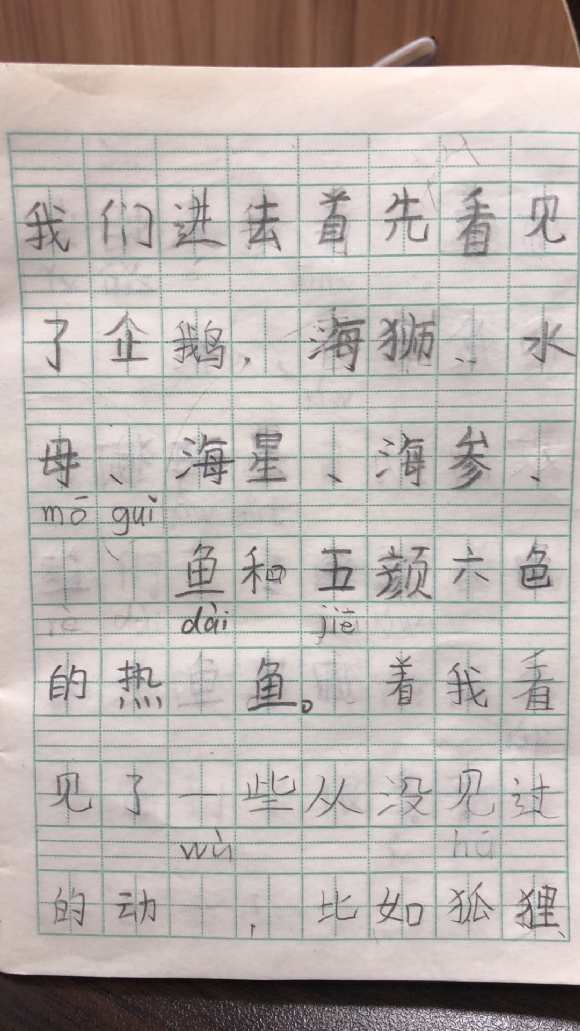 我们进去首先看见
了企鹅，海狮、水
母、海星、海参、
mō guǐ
鱼和五颜六色
dài jiē
的热鱼。着我看
见了一些从没见过
wù hú
的动，比如狐狸、